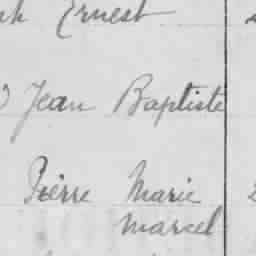 Ernest
Jean Baptiste
Pierre Marie
Marcel